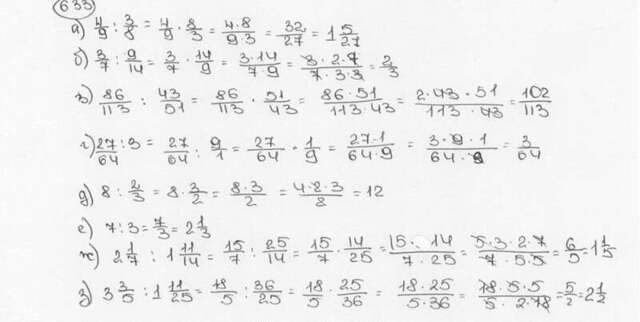 633
а) 4/9 : 3/8 = 4/9 · 8/3 = 4·8/9·3 = 32/27 = 1 5/27
б) 3/7 : 9/14 = 3/7 · 14/9 = 3·14/7·9 = 3·2·7/7·3·3 = 2/3
в) 86/113 : 43/51 = 86/113 · 51/43 = 86·51/113·43 = 2·43·51/113·43 = 102/113
г) 27/64 : 3 = 27/64 : 9/1 = 27/64 · 1/9 = 27·1/64·9 = 3·9·1/64·9 = 3/64
д) 8 : 2/3 = 8·3/2 = 8·3/2 = 4·2·3/2 = 12
е) 7:3 = 7/3 = 2 1/3
ж) 2 1/7 : 1 11/14 = 15/7 : 25/14 = 15/7 · 14/25 = 15·14/7·25 = 5·3·2·7/7·5·5 = 6/5 = 1 1/5
з) 3 3/5 : 1 11/25 = 18/5 : 36/25 = 18/5 · 25/36 = 18·25/5·36 = 18·5·5/5·2·18 = 5/2 = 2 1/2